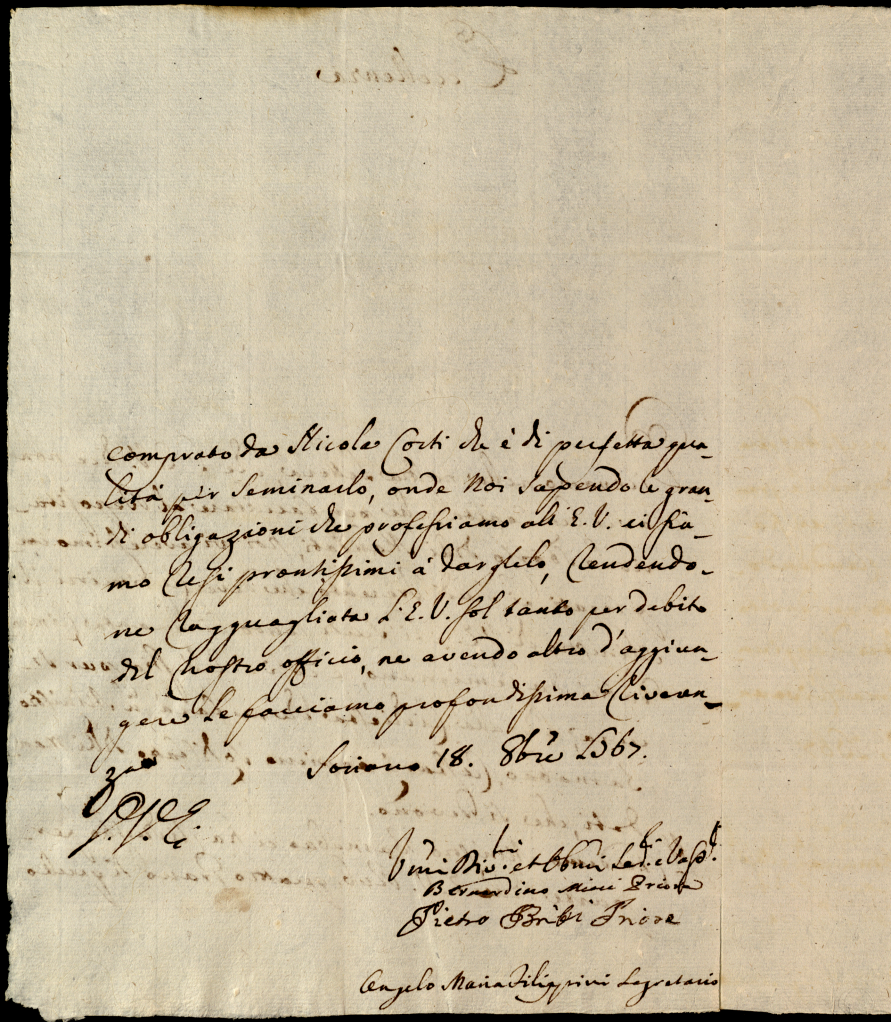 comprato da Nicola Corti che è di perfetta qua-
lità per seminarlo, onde noi sapendo le gran-
di obligazioni che professiamo all'E. V. ci sia-
mo resi prontissimi à darglelo, rendendo-
ne ragguagliata L'E. V. sol tanto per debito
del nostro officio, ne avendo altro d'aggiun-
gere le facciamo profondissima riveren-
za
Soriano 18. 8bre
V. V. E.
Umi Divmi et Obmi
Bernardino Mini Priore
Pietro Bribi Priore
Angelo Maria Filippini Segretario